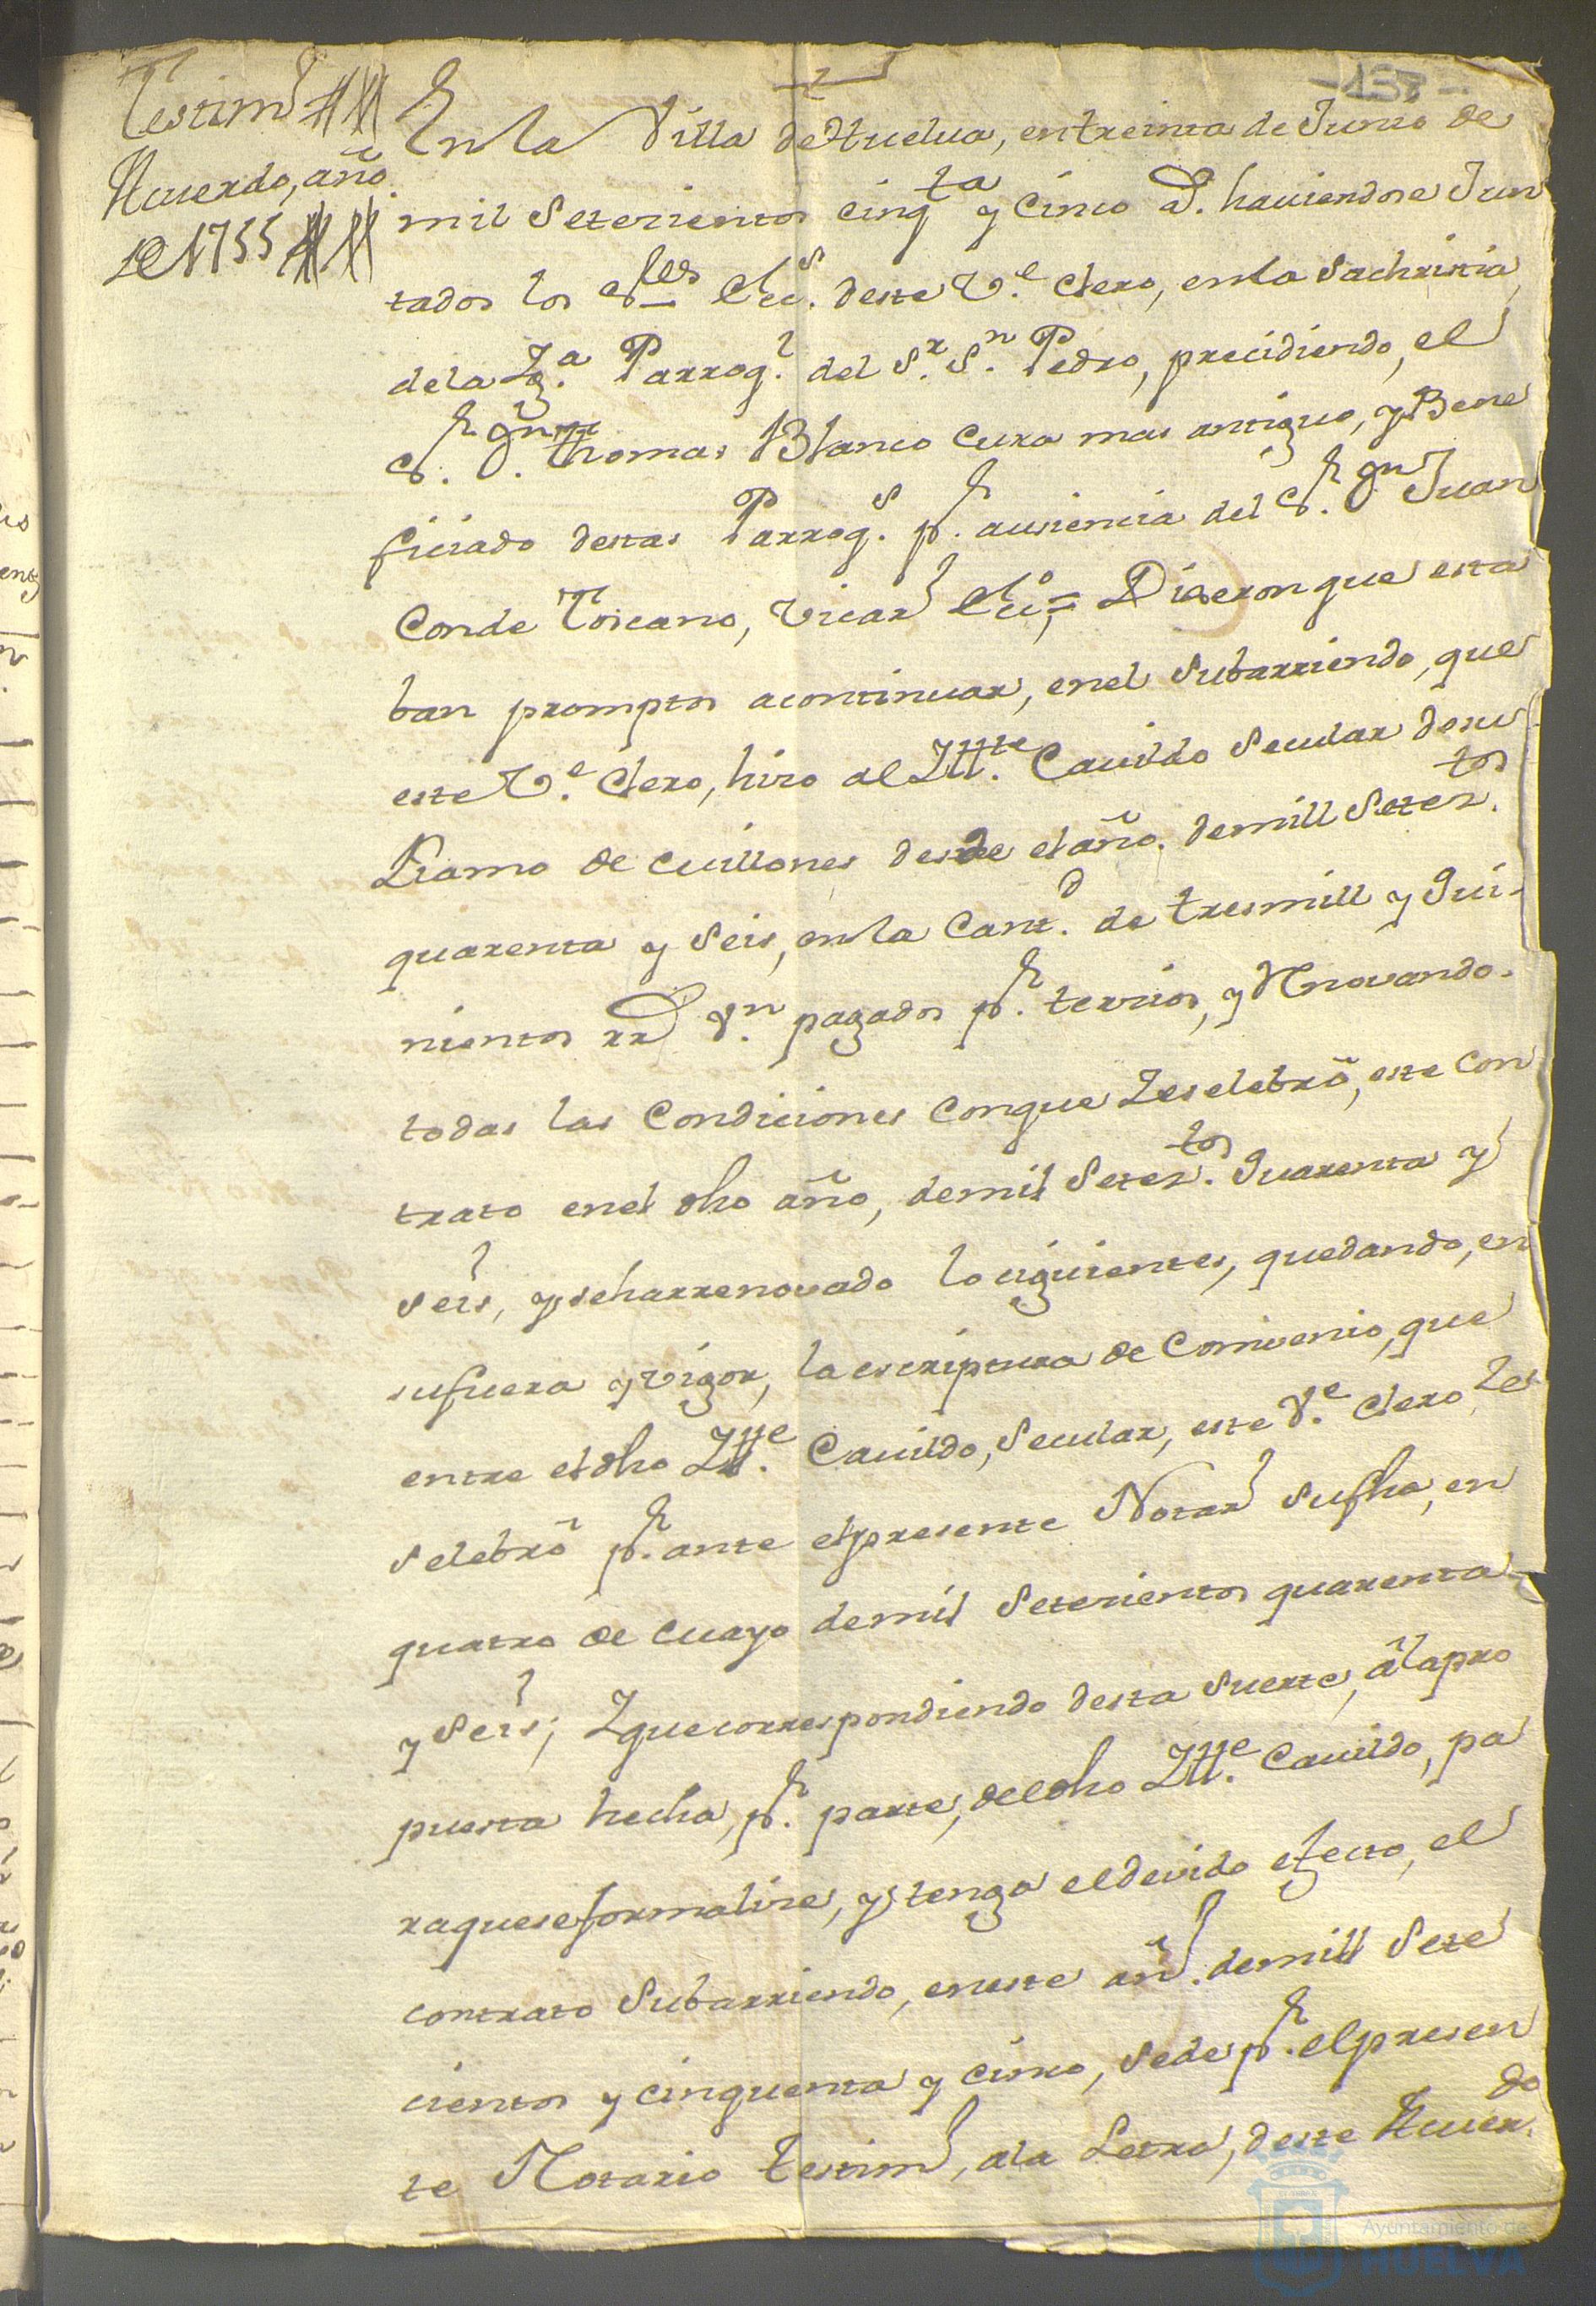 -137-
Testim.º
Acuerdo, año
de 1755
En la Villa de Huelua, en treinta de Junio de
mil Setecientos cinq.ta y cinco a.s hauiendose Jun
tados los S.res Ecc.s deste V.e Clero, en la Sachristia
de la Ig.a Parroq.l del S.r S.n Pedro, precidiendo, el
S.r D.n Thomas Blanco Cura mas antiguo, y Bene
ficiado destas Parroq.s p.r ausiencia del S.r D.n Juan
Conde Toscano, Vicar.o Ecc.o = Dixeron que esta
ban promptos acontinuar, enel Subarriendo, que
este V.e Clero, hizo al Ill.te Cauildo Secular desu
Ramo de Millones desde el año. demill Setez.tos
quarenta y Seis, en la Cant.d de tresmill y Qui-
nientos rr.s v.n pagados p.r tercios, y Rnovando-
todas las Condiciones conque Zeselebró, este Con
trato enel dho año, demil Setez.tos Quarenta y
Seis, y seharrenovado lo siguientes, quedando, en
sufuera y vigor, la escriptura de Comvenio, que
entre el dho Ill.e Cauildo, Secular, este V.e Clero Ze
Selebró p.r ante elpresente Notar.o Sufha, en
quatro de Mayo demil Setecientos quarenta
y Seis; Y quecorrespondiendo desta Suerte, álapro
puesta hecha, p.r parte, deldho Ill.e Cauildo, pa
raqueseformalise, y tenga eldevido efecto, el
contrato Subarriendo, eneste añ.o demill Sete
cientos y cinquenta y cinco, Sede p.r elpresen
te Notario Testim.o, ala Letra, deste Acuer.do
Ayuntamiento de
HUELVA